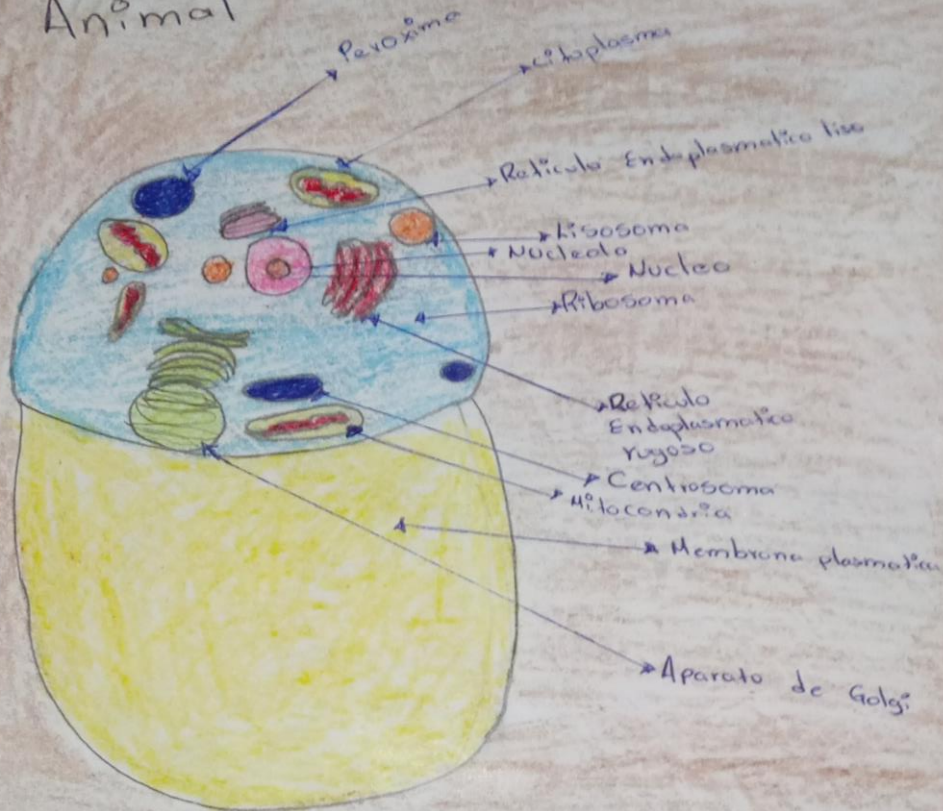 Animal
Peroxima
citoplasma
Reticulo Endoplasmatico liso
Lisosoma
Nucleolo
Nucleo
Ribosoma
Reticulo
Endoplasmatico
rugoso
Centrosoma
Mitocondria
Membrana plasmatica
Aparato de Golgi